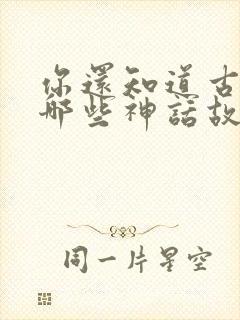 你還知道古
那些神話故
同一片星空